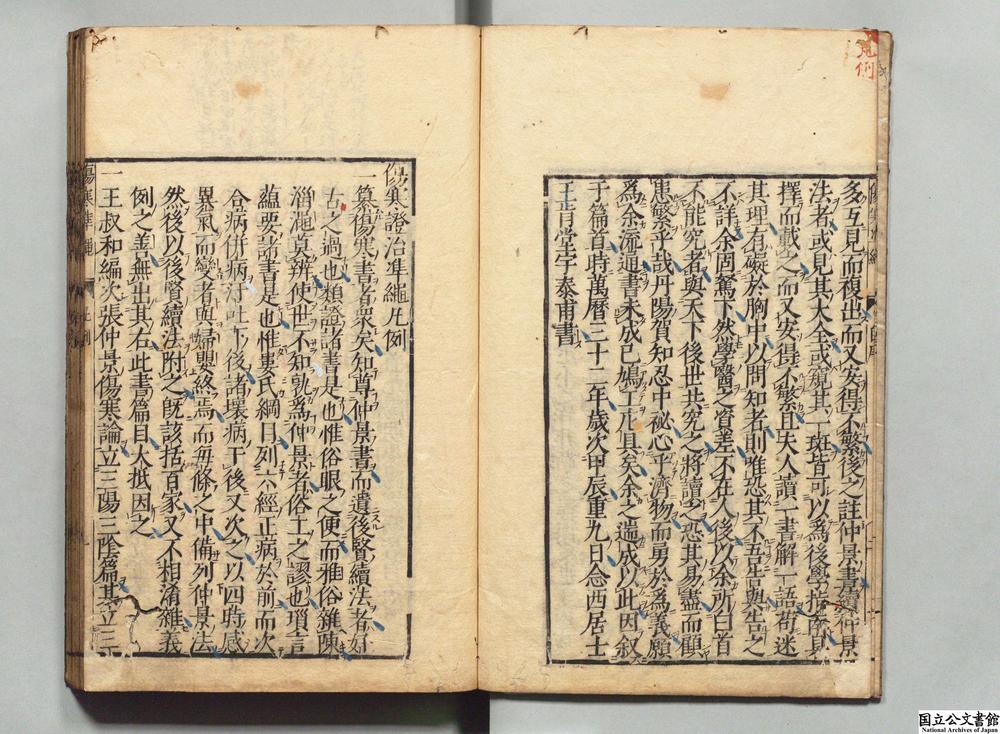 凡例
多互見而複出而又安得不繁後之註仲景書續仲景
法者或見其大全或窺其一斑皆可以為後學指南具
擇而載之而又安得不繁且夫人讀一書解一語苟迷
其理有礙於胸中以問知者則唯恐其不吾告與告之
不詳余固駑下然學醫之資差不在人後以余所白首
不能究者與天下後世共究之將讀之恐其易盡而顧
患繁乎哉丹陽賀知忍中祕心乎濟物而勇於為義願
為余流通書未成已鳩工庀具矣余之遄成以此因叙
于篇首時萬曆三十二年歲次甲辰重九日念西居士
王肯堂宇泰甫書
傷寒證治準繩凡例
一纂傷寒書者衆矣知尊仲景書而遺後賢續法者好
古之過也類證諸書是也惟俗眼之便而雅俗雜陳
淄澠莫辨使世不知孰爲仲景者俗工之謬也瑣言
蘊要諸書是也惟婁氏綱目列六經正病於前而次
合病併病汗吐下後諸壞病于後又次之以四時感
異氣而變者與婦嬰終焉而每條之中備列仲景法
然後以後賢續法附之旣該括百家又不相淆雜義
例之善無出其右此書篇目大抵因之
一王叔和編次張仲景傷寒論立三陽三陰篇其立三
国立公文書館
National Archives of Japan